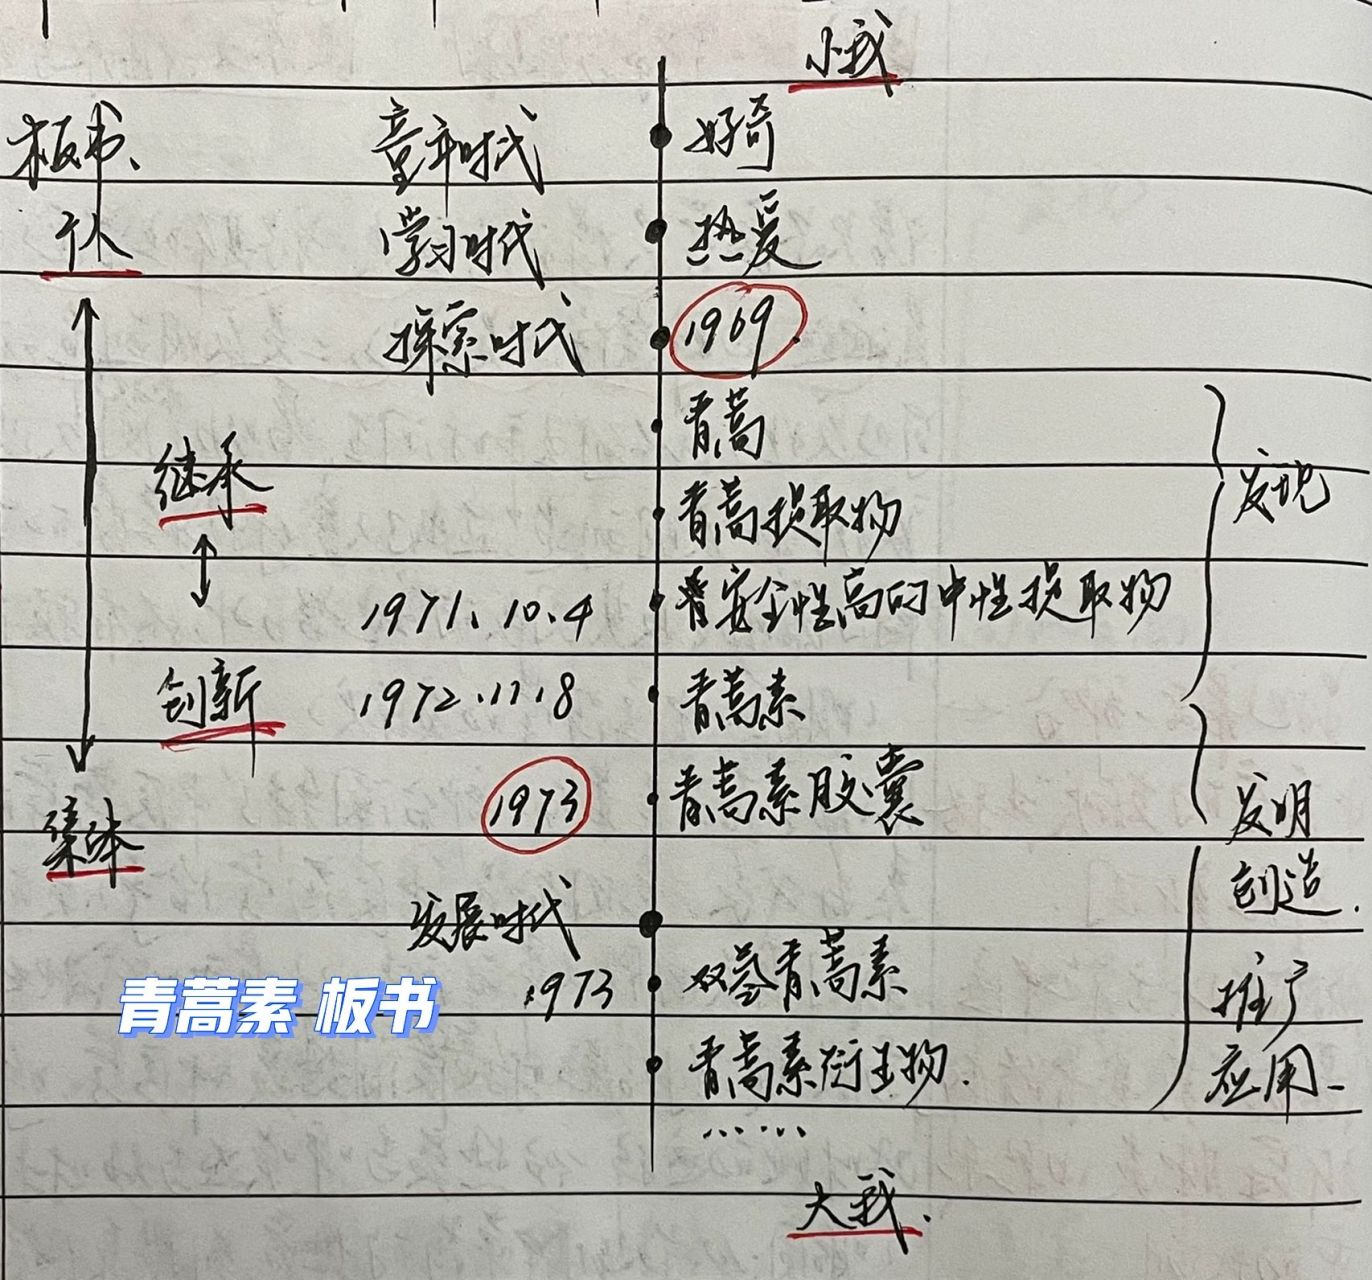 小我
板书、 童年时代 好奇
个体 学习时代 热爱
探索时代 1969.
青蒿
继承 青蒿提取物 发现
1971.10.4 青安全性高的中性提取物
创新 1972.11.8 青蒿素
1973 青蒿素胶囊 发明
集体 创造.
发展时代
1973 双氢青蒿素 推广
青蒿素 板书
青蒿素衍生物. 应用
……
大我.